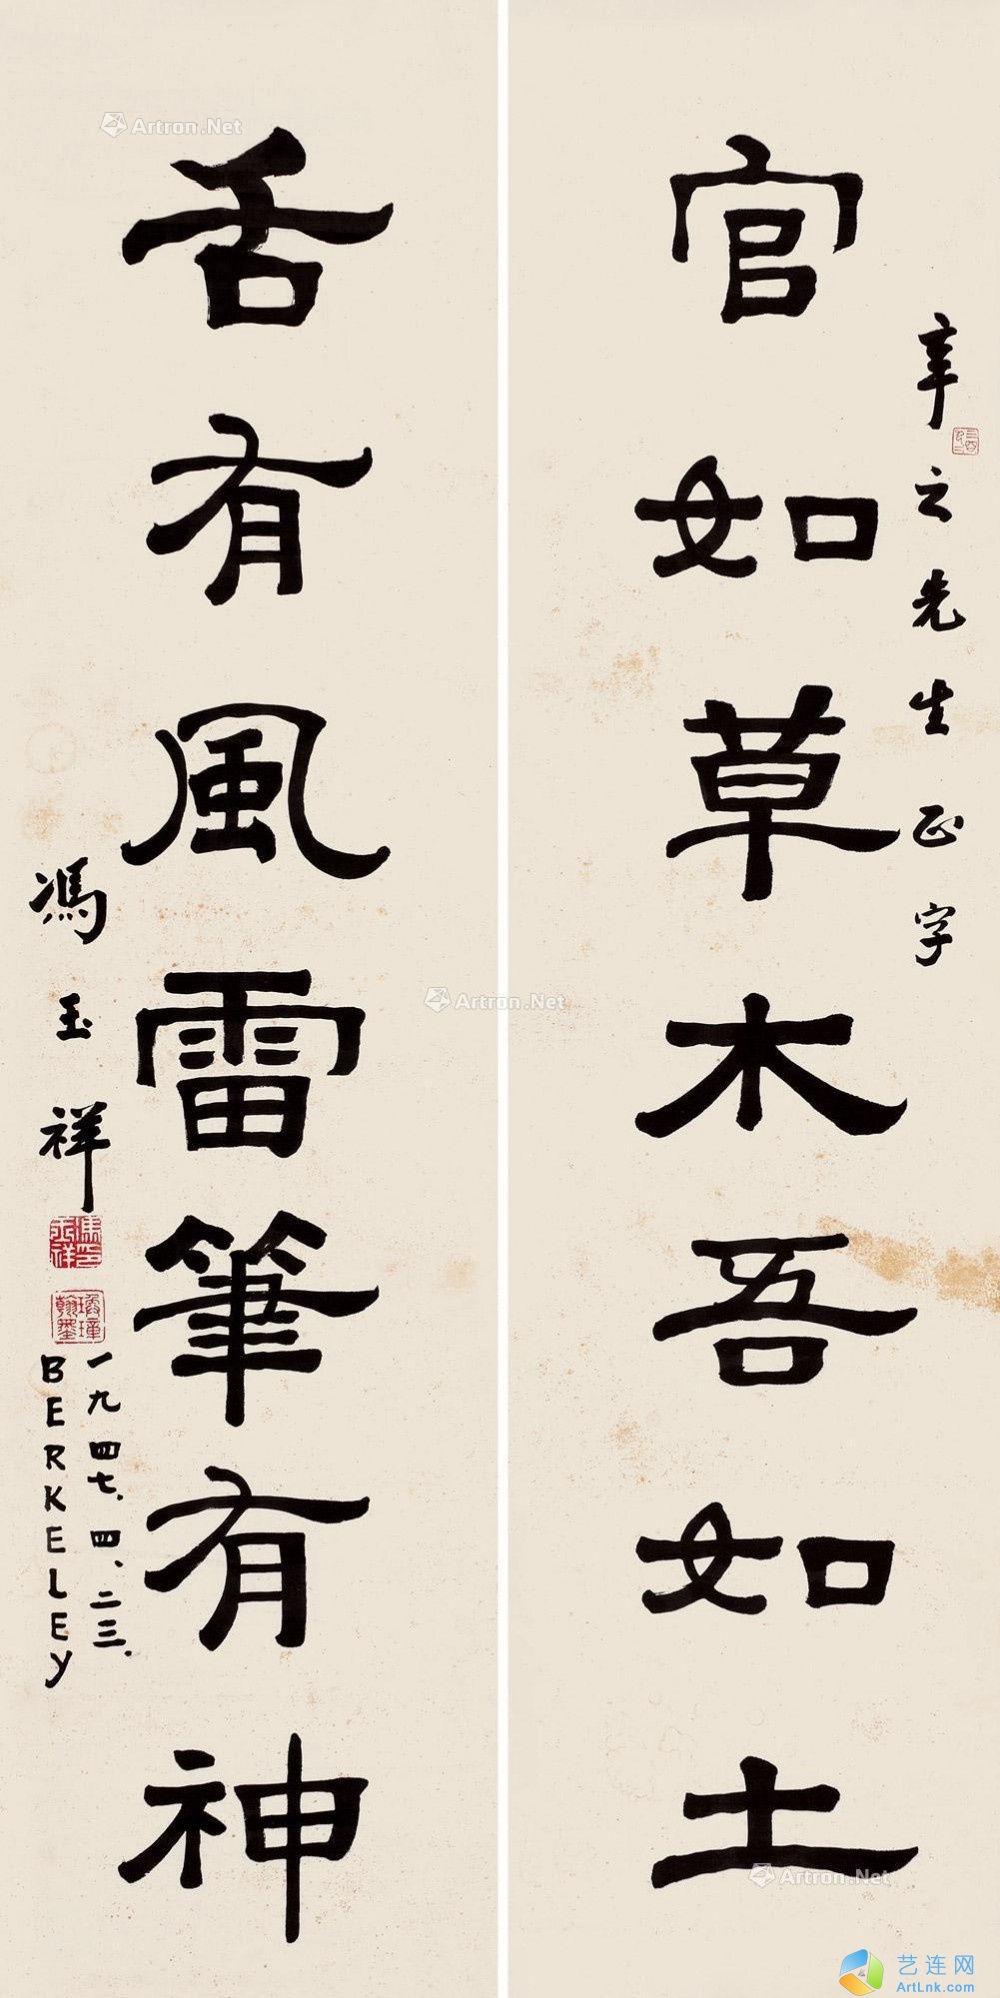 官如草木吾如土
辛之先生正字
舌有風雷筆有神
馮玉祥
一九四七、四、二三.
BERKELEY
Artron.Net
Artron.Net
Artron.Net
艺连网
ArtLnk.com